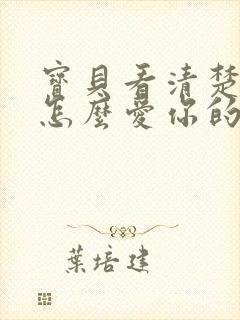 寶貝看清楚
怎麼愛你的
葉培建